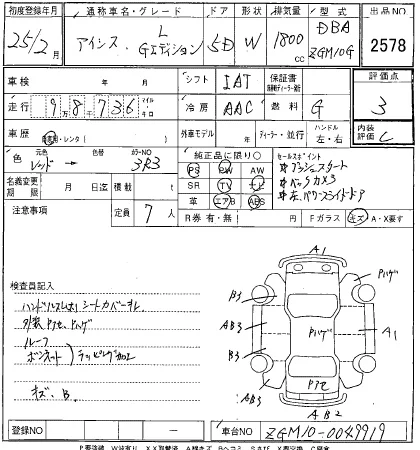 初度登録年月 通称車名・グレード ドア 形状 排気量 型式 出品NO
25年/2月 アイシス L Gエディション 5D W 1800cc DBA ZGM10G 2578
車検 年 月 シフト IAT 保証書 評価点
走行 9万8千736 マイル キロ 冷房 AAC 燃料 G 3
車歴 自家用・レンタ( ) 外車モデル 年 ディーラー・並行 ハンドル 左・右 内装評価 C
色 元色 レッド → 色替 カラーNO 3R3 純正品に限り○ セールスポイント
PS PW AW *プッシュスタート
名義変更期限 月 日迄 積載 t SR TV ナビ *バックカメラ
革 エアB ABS *左、パワースライドドア
注意事項 定員 7人 R券 有・無( )円 Fガラス キズ A・X要す
検査員記入
ハンドルスレ シートカバー
外装 ハゲ
ルーフ
ボンネット ラッピング
キズ、B.
A1
B3
AB3
B3
AB3
AB2
A1
ハゲ
ハゲ
登録NO 車台NO ZGM10-0049919